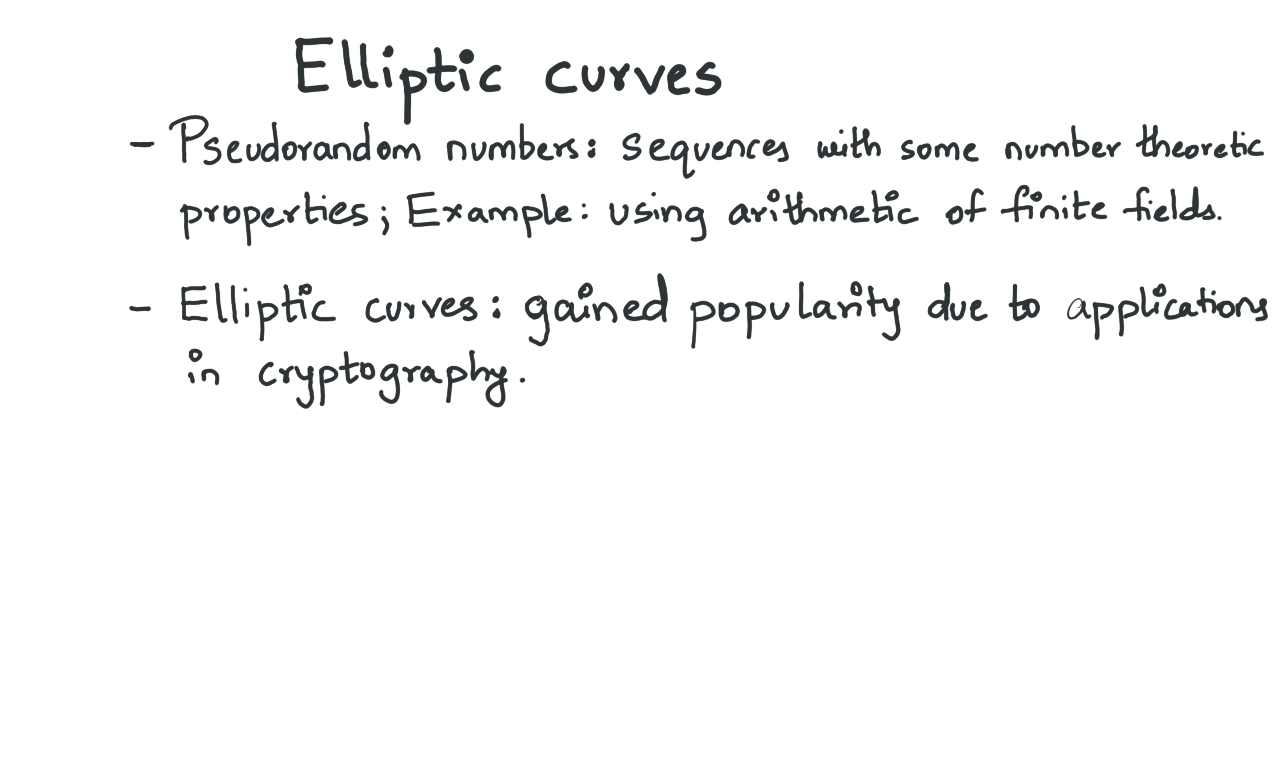 Elliptic curves
- Pseudorandom numbers: sequences with some number theoretic
properties; Example: using arithmetic of finite fields.
- Elliptic curves: gained popularity due to applications
in cryptography.